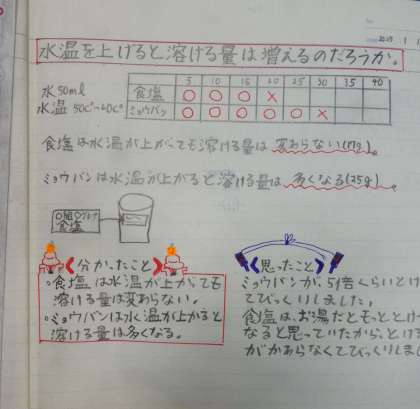 水温を上げると溶ける量は増えるのだろうか。
5 10 15 20 25 30 35 40
水50ml 食塩 ○ ○ ○ ×
水温 ミョウバン ○ ○ ○ ○ ○ ×
食塩は水温が上がっても溶ける量は変わらない
ミョウバンは水温が上がると溶ける量は多くなる
食塩
《分かったこと》
○食塩は水温が上がても
溶ける量は変わらない。
○ミョウバンは水温が上がると
溶ける量は多くなる。
《思ったこと》
ミョウバンが、5倍くらいとけ
てびっくりしました。
食塩は、お湯だともっととけ
なると思っていたから、とける
がかわらなくてびっくりしま